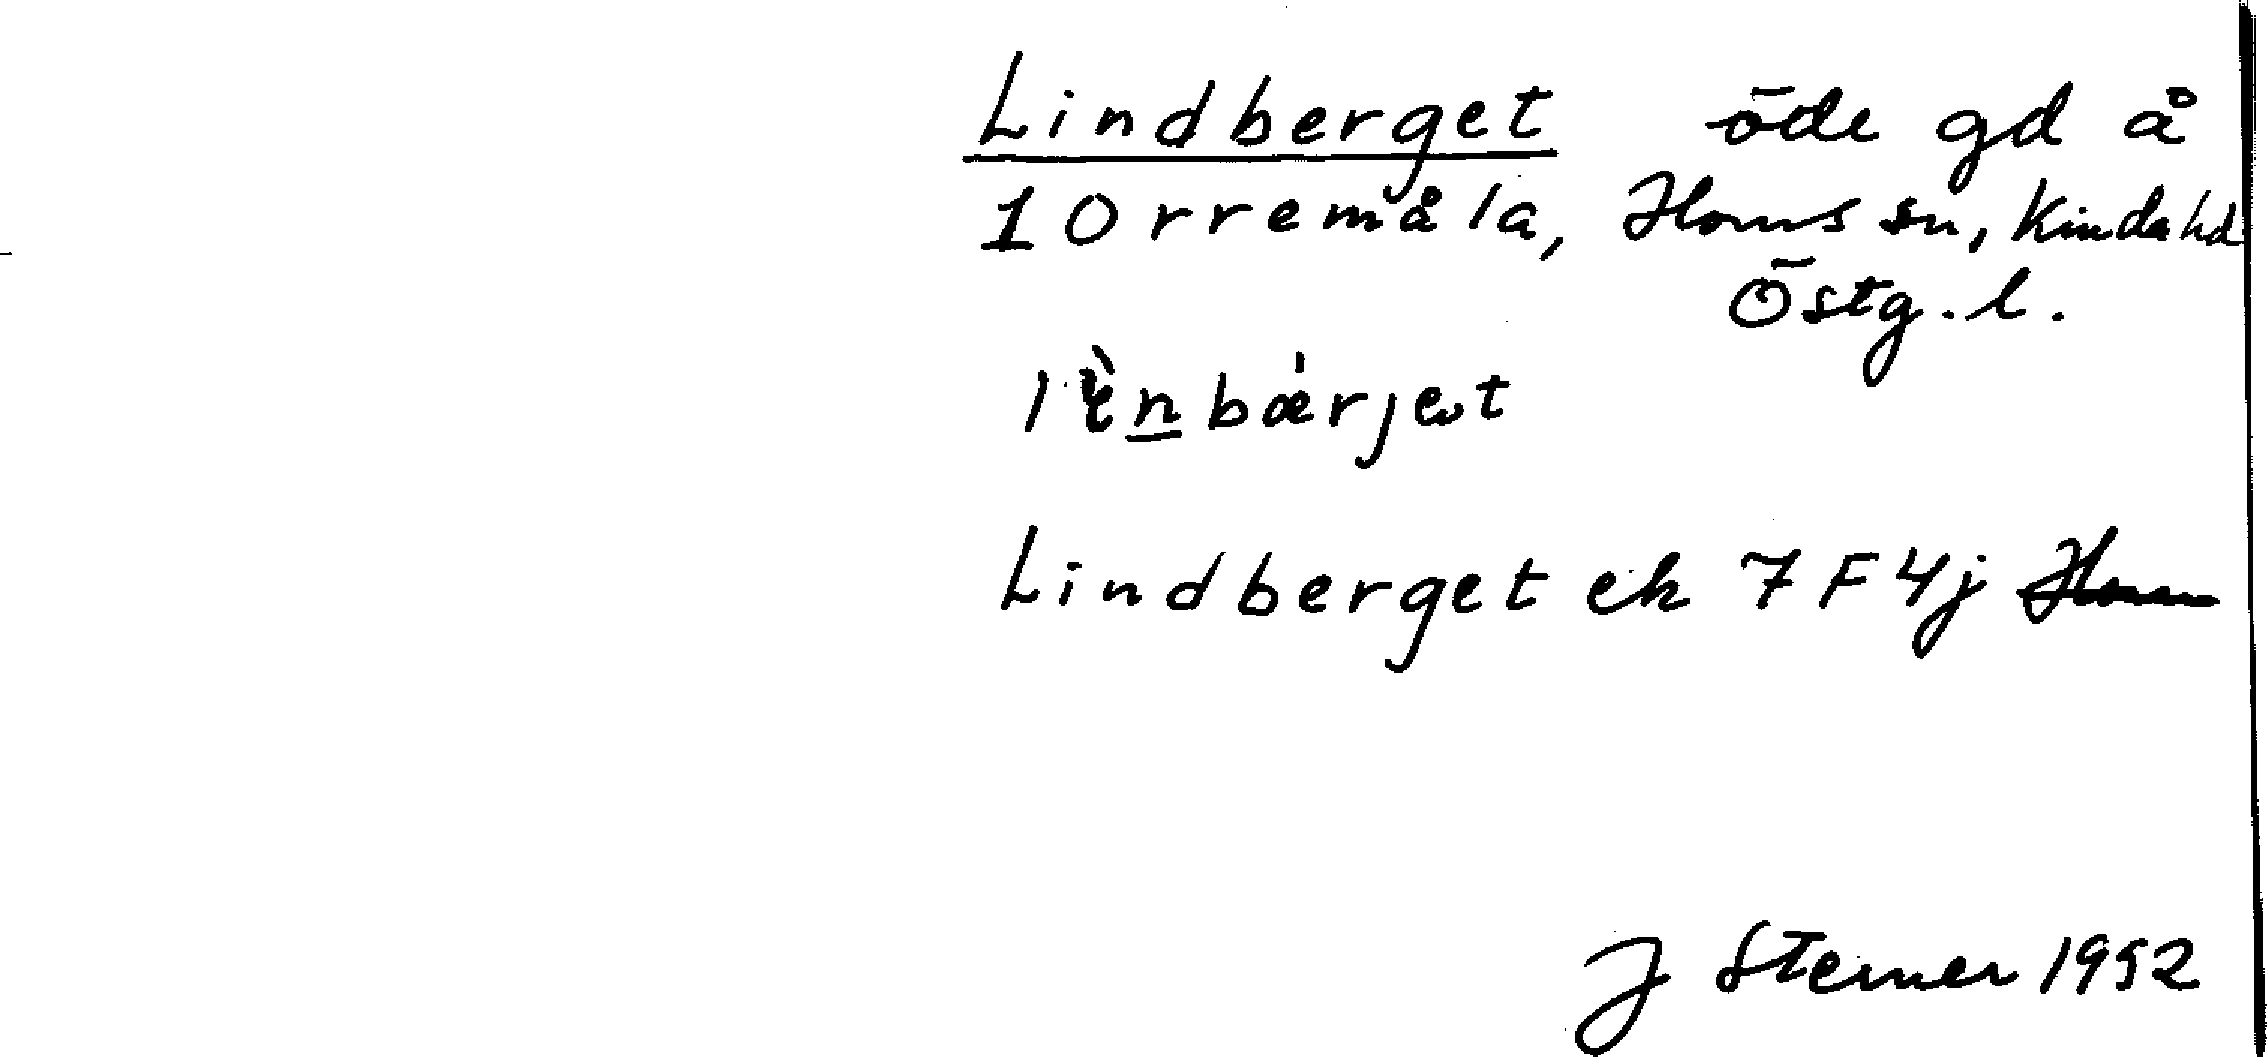 Lindberget öde gd å
1 Orremåla, Horns sn, Kinda hd
Östg. l.
lèn̲bǽrjət
Lindberget ek 7F4j
J Sterner 1952